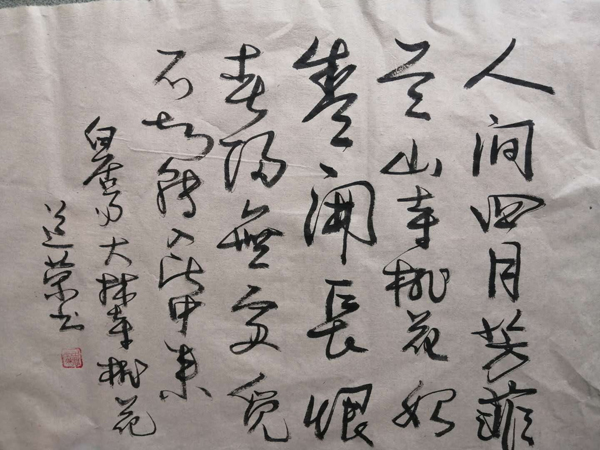 人间四月芳菲
尽山寺桃花始
盛開長恨
春归無处觅
不知转入此中来
白居易大林寺桃花
荣书